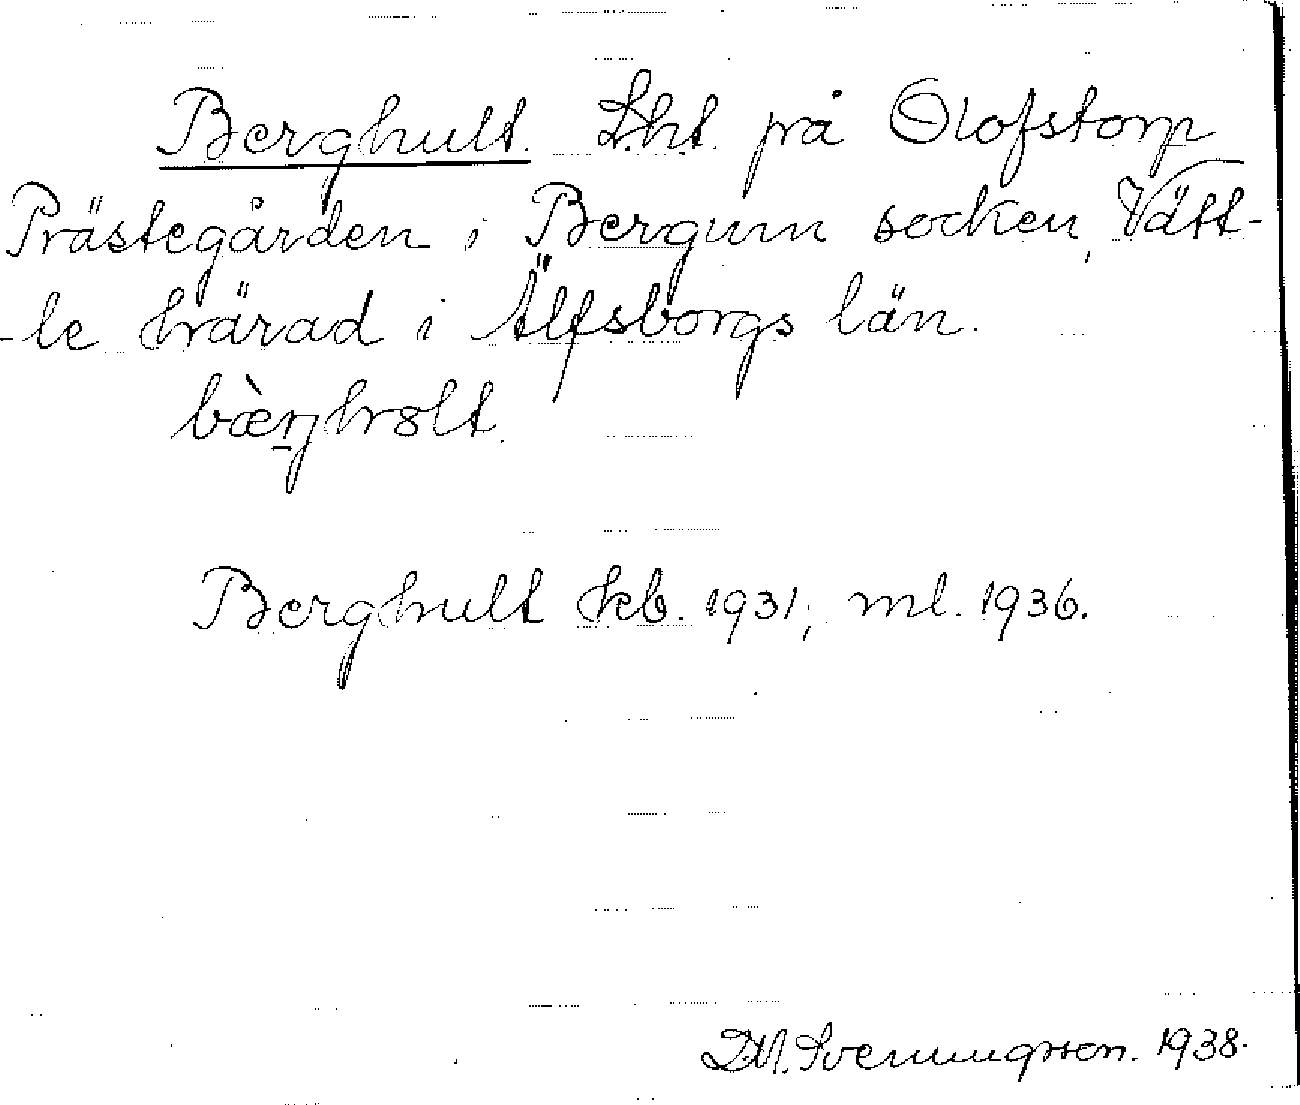 Berghult. L.ht. på Olofstorp
Prästegården i Bergum socken, Vätt-
-le härad i Älfsborgs län.
bæ̀rjhɤlt.
Berghult kb. 1931; ml. 1936.
D.M. Svenningsson. 1938.